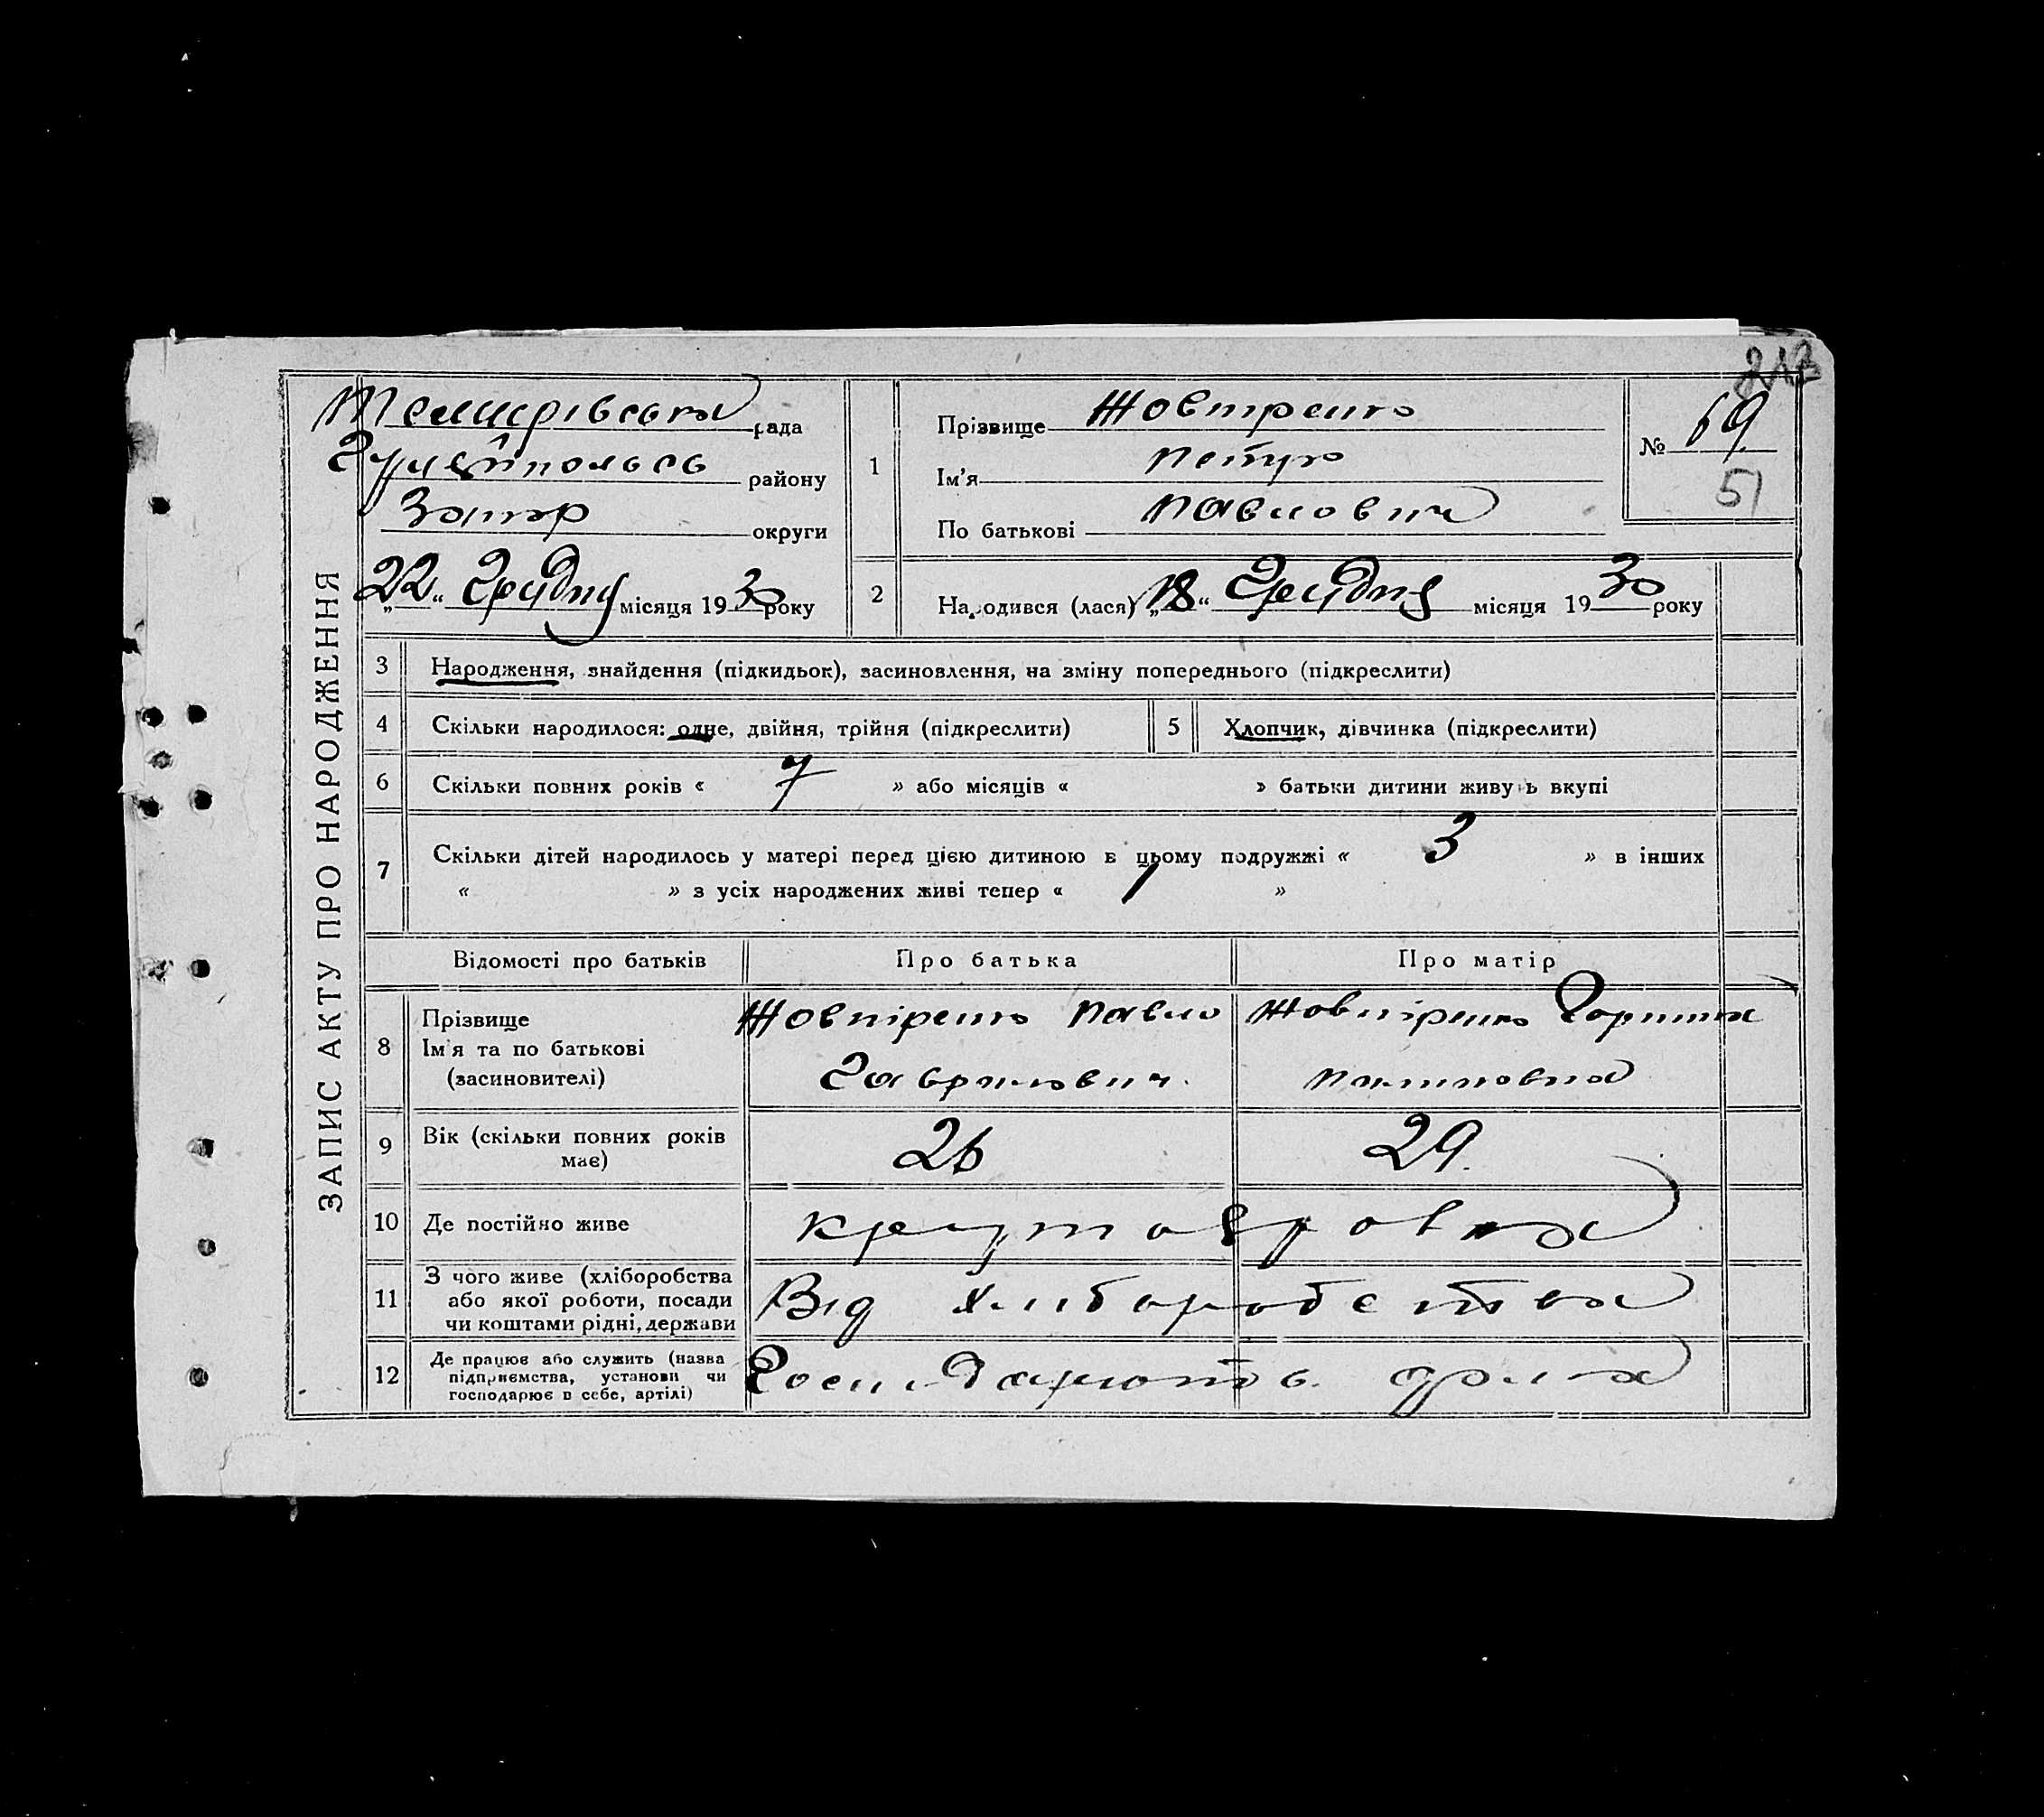 213
ЗАПИС АКТУ ПРО НАРОДЖЕННЯ
Темирівська рада
Гуляйпольсь району
Запор округи
„22“ Грудня місяця 1930 року
1
Прізвище Жовтіренко
Ім'я Петро
По батькові Павлович
№ 69
51
2 Народився (лася) „18“ Грудня місяця 1930 року
3 Народження, знайдення (підкидьок), засиновлення, на зміну попереднього (підкреслити)
4 Скільки народилося: одне, двійня, трійня (підкреслити) 5 Хлопчик, дівчинка (підкреслити)
6 Скільки повних років « 7 » або місяців « » батьки дитини живуть вкупі
7 Скільки дітей народилось у матері перед цією дитиною в цьому подружжі « 3 » в інших
« » з усіх народжених живі тепер « 1 »
Відомості про батьків Про батька Про матір
8 Прізвище
Ім'я та по батькові
(засиновителі)
Жовтіренко Павло
Гаврилович.
Жовтіренко Горпина
9 Вік (скільки повних років
має)
26 29.
10 Де постійно живе
11 З чого живе (хліборобства
або якої роботи, посади
чи коштами рідні, держави
Від хліборобства
12 Де працює або служить (назва
підприємства, установи чи
господарює в себе, артілі)